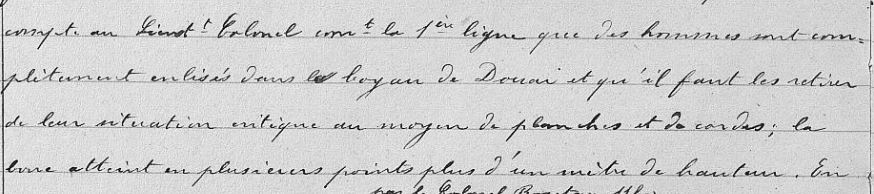 compte au Lieut^t Colonel com^t la 1^ère ligne que des hommes sont com=
plètement enlisés dans le boyau de Douai et qu'il faut les retirer
de leur situation critique au moyen de planches et de cordes ; la
boue atteint en plusieurs points plus d'un mètre de hauteur. En
par le Colonel